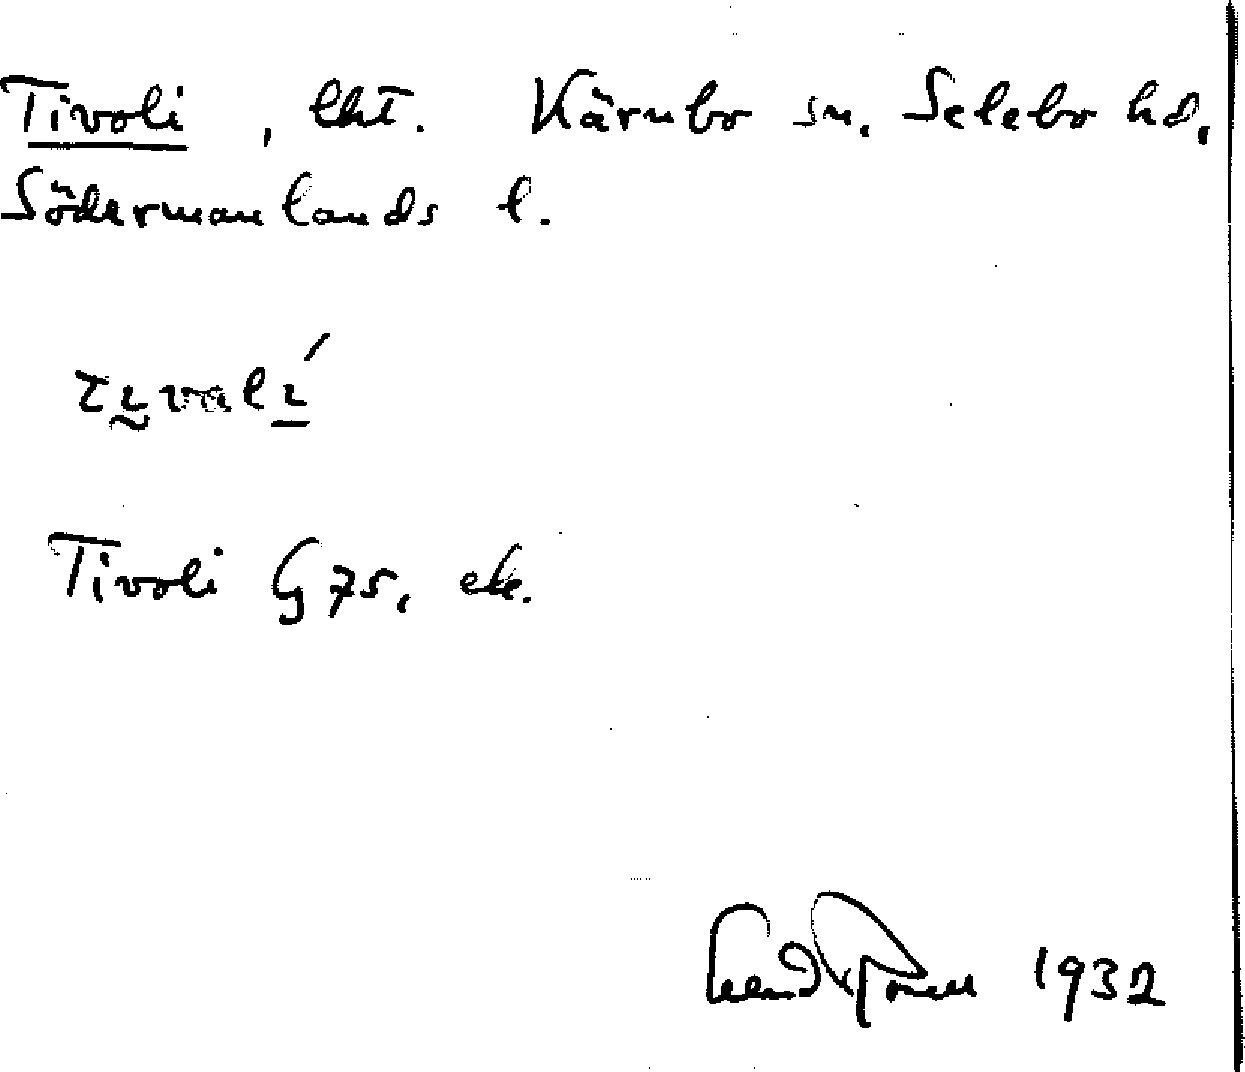 Tivoli, lht. Kärnbo sn. Selebo hd.
Södermanlands l.
Tivoli G 75, ek.
1932